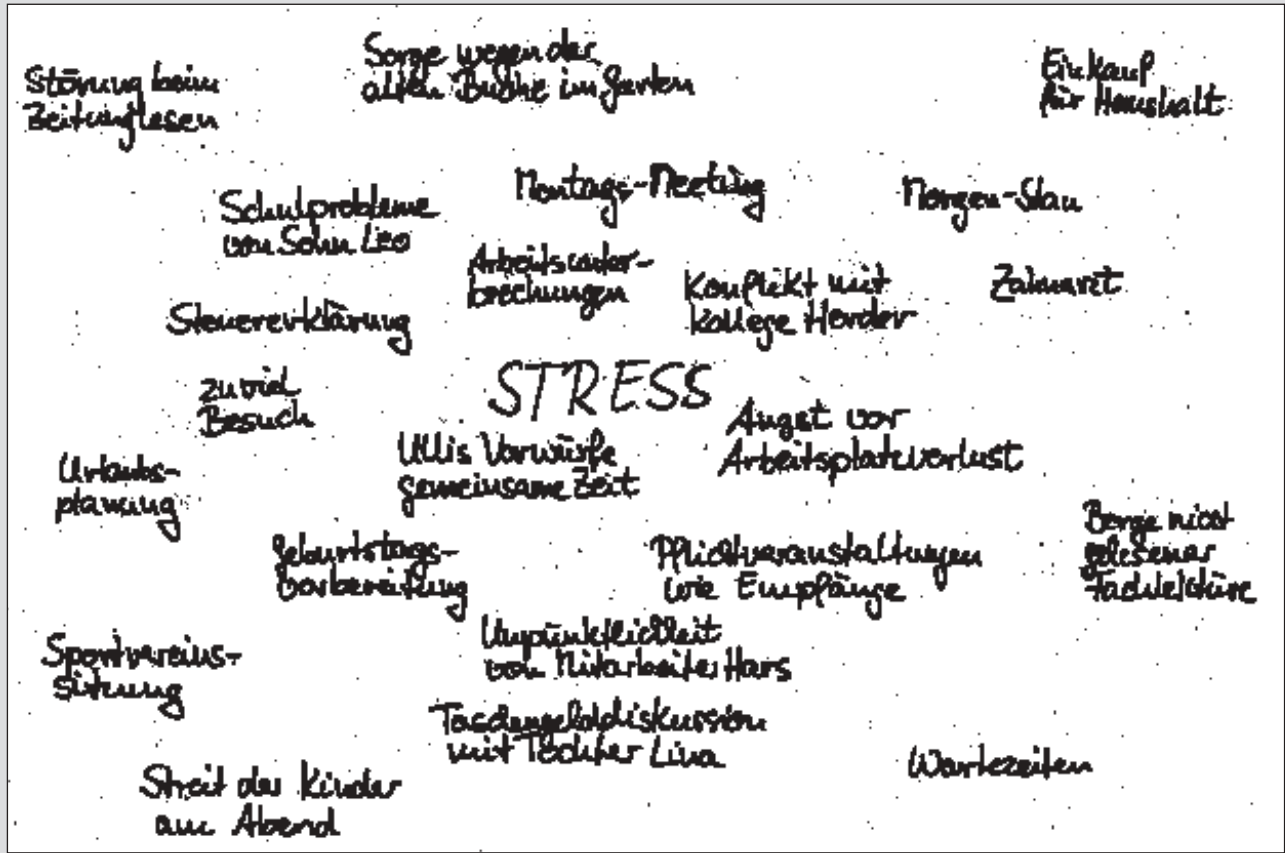 Störung beim
Zeitunglesen
Sorge wegen der
alten Buche im Garten
Einkauf
für Haushalt
Schulprobleme
von Sohn Leo
Montags-Meeting
Morgen-Stau
Arbeitsunter-
brechungen
Konflikt mit
Kollege Herder
Zahnarzt
Steuererklärung
zu viel
Besuch
STRESS
Angst vor
Arbeitsplatzverlust
Ullis Vorwürfe
gemeinsame Zeit
Urlaubs-
planung
Geburtstags-
vorbereitung
Pflichtveranstaltungen
wie Empfänge
Berge nicht
gelesener
Fachlektüre
Unpünktlichkeit
von Mitarbeiter Hars
Sportvereins-
sitzung
Taschengelddiskussion
mit Tochter Lina
Wartezeiten
Streit der Kinder
am Abend